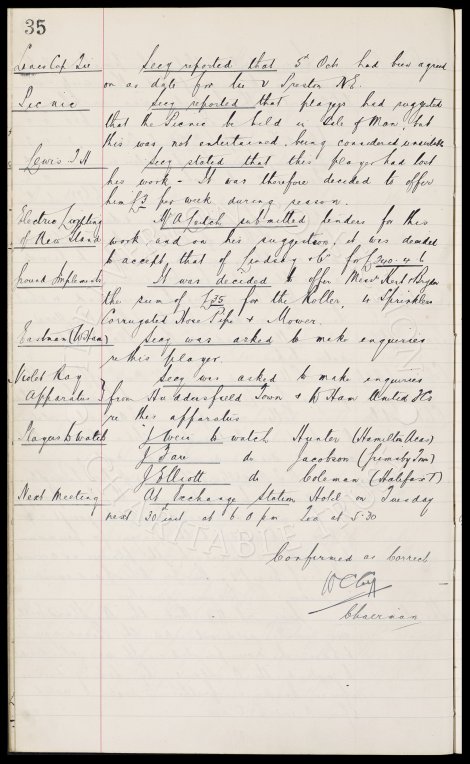 35
Lancs Cup Tie Secy reported that 5th Octr had been agreed
on as date for tie v Preston N.E.
Picnic Secy reported that players had suggested
that the Picnic be held in Isle of Man, but
this was not entertained, being considered unsuitable
Lewis T H Secy stated that this player had lost
his work - It was therefore decided to offer
him £3 per week during season.
Electric Lighting Mr A Leitch submitted tenders for this
of New Stand work and on his suggestion, it was decided
to accept that of Lindsay & Co for £240.4.6
Ground Implements It was decided to offer Messrs Kert & Bryden
the sum of £35 for the Roller, 4 Sprinklers
Corrugated Hose Pipe & Mower.
Eastman (W Ham) Secy was asked to make enquiries
re this player.
Violet Ray Secy was asked to make enquiries
Apparatus from Huddersfield Town & W Ham United FCs
re this apparatus
Players to watch J Weir to watch Hunter (Hamilton Acas)
J Fare do Jacobson (Grimsby Town)
J Elliott do Coleman (Halifax T)
Next Meeting At Exchange Station Hotel on Tuesday
next 30th inst at 6 0 pm Tea at 5.30
Confirmed as Correct
W C Cuff
Chairman